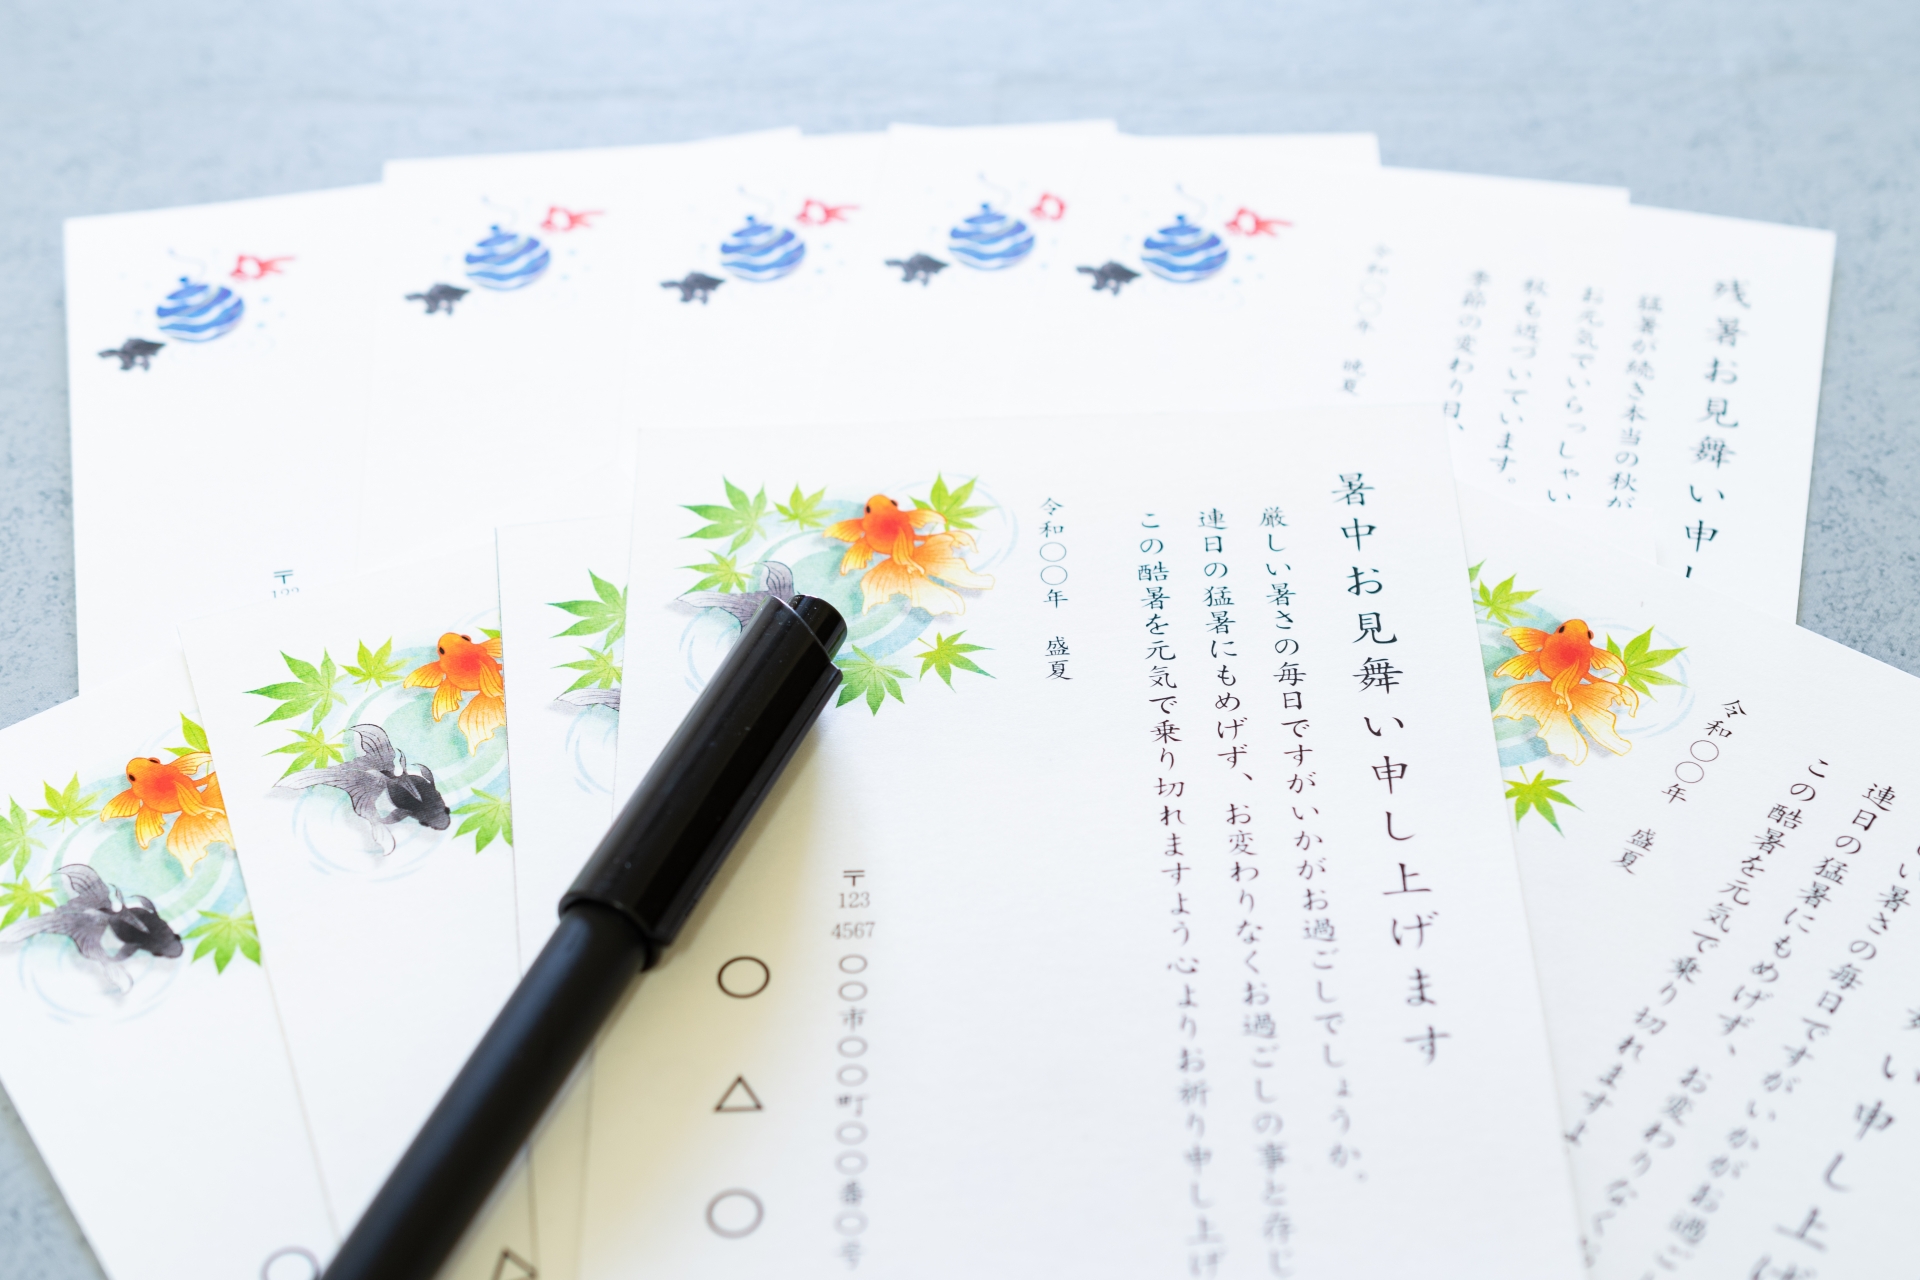 暑中お見舞い申し上げます
厳しい暑さの毎日ですがいかがお過ごしでしょうか。
連日の猛暑にもめげず、お変わりなくお過ごしの事と存じ
この酷暑を元気で乗り切れますよう心よりお祈り申し上げ
令和〇〇年 盛夏
〒
123
4567
〇〇市〇〇町〇〇番〇号
〇△〇
残暑お見舞い申し
猛暑が続き本当の秋が
お元気でいらっしゃい
秋も近づいています。
季節の変わり目、
令和〇〇年 晩夏
〒
い申し上げ
い暑さの毎日ですがいかがお過ご
連日の猛暑にもめげず、お変わりなく
この酷暑を元気で乗り切れますよ
令和〇〇年 盛夏